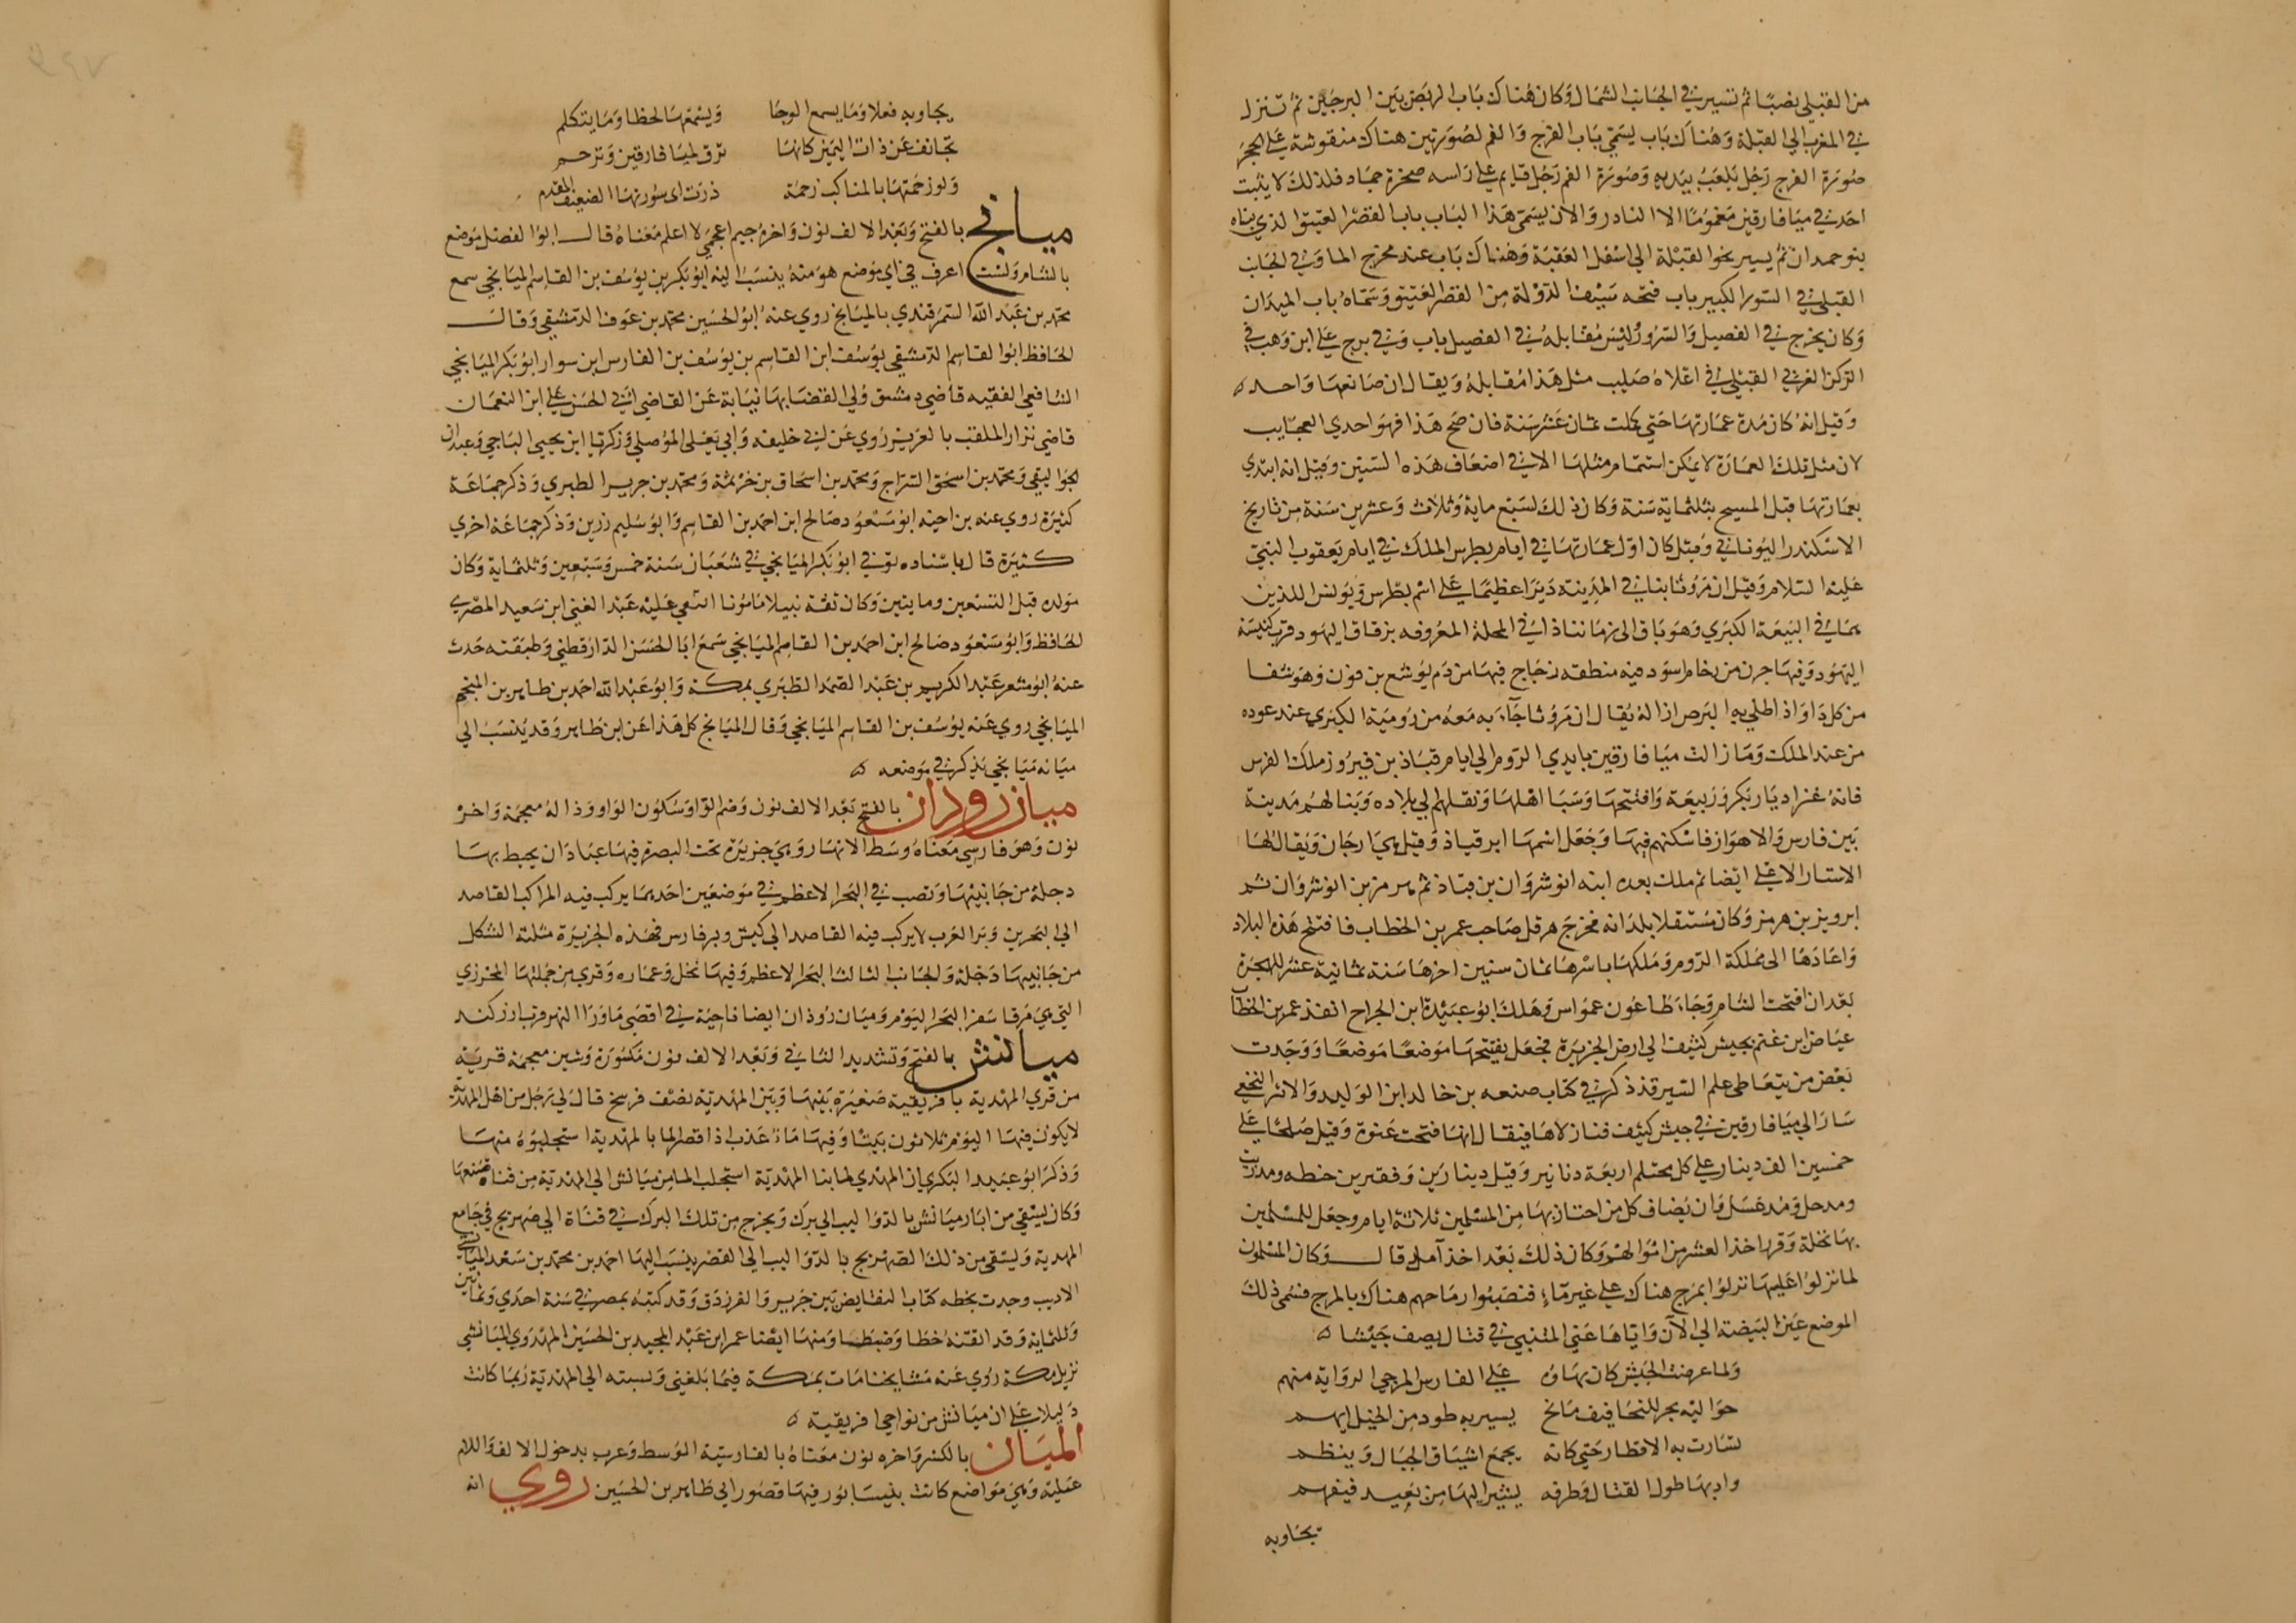 من القبلي بضبا ثم تسير في الجانب الشمال وكان هناك باب الربض بين البرجين ثم تنزل
في المغرب الي القبلة وهناك باب يسمي باب الفرج والغم لصورتين هناك منقوشة علي الحجر
صورة الفرج رجل يلعب بيديه وصورة الغم رجل قايم علي راسه صخرة جماد فلذلك لا يثبت
احد في ميافارقين مغموما الا النادر والان يسمي هذا الباب باب القصر العتيق الذي بناه
بنو حمدان ثم يسير نحو القبلة الي اسفل العقبة وهناك باب عند مخرج الما وفي الجانب
القبلي في السور الكبير باب فتحه سيف الدولة من القصر العتيق وسماه باب الميدان
وكان يخرج في الفصيل والسرور ليس مقابله في الفصيل باب وفي برج علي ابن وهب في
الركن الغربي القبلي في اعلاه صليب مثل هذا مقابله ويقال ان صانعها واحد ه
وقيل انه كان مدة عمارتها حتي كملت ثمان عشر سنة فان صح هذا فهو احدي العجايب
لان مثل تلك العمارة لا يمكن استتمام مثلها الا في اضعاف هذه السنين وقيل انه ابتدي
بعمارتها قبل المسيح بثلثماية سنة وكان ذلك لسبع ماية وثلاث وعشرين سنة من تاريخ
الاسكندر اليوناني وقيل كان اول عمارتها في ايام بطرس الملك في ايام يعقوب النبي
عليه السلام وقيل ان مروثا بنا في المدينة ديرا عظيما علي اسم بطرس وبولس اللذين
هما في البيعة الكبري وهو باق الي زماننا ذا في المحلة المعروفه بزقاق اليهود قرب كنيسة
اليهود وفيها جرن من رخام اسود فيه منطقه زجاج فيها من دم يوشع بن نون وهو شفا
من كل داو اذا طلي به البرص ازاله يقال ان مروثا جآء به معه من رومية الكبري عند عوده
من عند الملك وما زالت ميافارقين بايدي الروم الي ايام قباذ بن فيروز ملك الفرس
فانه غزا ديار بكر وربيعة وافتتحها وسبا اهلها ونقلهم الي بلاده وبنا لهم مدينة
بين فارس والاهواز فاسكنهم فيها وجعل اسمها ابرقباذ وقيل هي ارجان ويقال لها
الاستار الاعلي ايضا ثم ملك بعده ابنه انوشروان بن قباذ ثم هرمز بن انوشروان ثم
ابرويز بن هرمز وكان مستقلا بلدانه فخرج هرقل صاحب عمر بن الخطاب فافتتح هذه البلاد
واعادها الي مملكة الروم وملكها باسرها ثمان سنين اخرها سنة ثمانية عشر للهجرة
بعد ان افتحت الشام وجاء طاعون عمواس وهلك ابو عبيدة ابن الجراح انفذ عمر بن الخطاب
عياض ابن غنم بجيش كثيف الي ارض الجزيرة فجعل يفتحها موضعا موضعا ووجدت
بعض من يتعاطي علم السير قد ذكر في كتاب صنعه بن خالد ابن الوليد والاشتر النخعي
سارا الي ميافارقين في جيش كثيف فنازلاها فيقال انها فتحت عنوة وقيل صلحا علي
خمسين الف دينار علي كل محتلم اربعة دنانير وقيل دينارين وقفيرين حنطه ومد زيت
ومد خل ومد عسل وان يضاف كل من اجتاز بها من المسلمين ثلاثة ايام وجعل للمسلمين
بها نخلة وقرر اخذ العشر من اموالهم وكان ذلك بعد اخذ آمد قال وكان المسلمون
لما نزلوا عليها نزلوا بمرج هناك علي غير ماء فنصبوا رماحهم هناك بالمرج فسمي ذلك
الموضع عين البيضة الي الآن واياها عني المتنبي في قتال يصف جيشا ه
ولما عرضت الجيش كان بهاؤه علي الفارس المرجي الذوابة منهم
حواليه بحر للتجافيف مائج يسير به طود من الخيل ايهم
تساوت به الاقطار حتي كانه يجمع اشتات الجبال وينظم
وادبها طول القتال وطرفه يشير اليها من بعيد فيفهم
يجاوبه
يجاوبه فعلا وما يسمع الوحا ويسمعها لحظا وما يتكلم
تجانف عن ذات اليمين كانها ترق لميافارقين وترحم
ولو زحمتها بالمناكب زحمة درت اي سوريها الضعيف المهدم
ميانج بالفتح وبعد الالف نون واخره جيم اعجمي لا اعلم معناه قال ابو الفضل موضع
بالشام ولست اعرف في اي موضع هو منه ينسب اليه ابو بكر بن يوسف بن القاسم الميانجي سمع
محمد بن عبد الله السمرقندي بالميانج روي عنه ابو الحسين محمد بن عوف الدمشقي وقال
الحافظ ابو القاسم الدمشقي يوسف ابن القاسم بن يوسف بن الفارس ابن سوار ابو بكر الميانجي
الشافعي الفقيه قاضي دمشق ولي القضا بها نيابة عن القاضي ابي الحسن علي ابن النعمان
قاضي نزار الملقب بالعزيز روي عن ابي خليفه وابي يعلي الموصلي وزكريا ابن يحيي الساجي وعبدان
الجواليقي ومحمد بن اسحق السراج ومحمد بن اسحاق بن خزيمة ومحمد بن جرير الطبري وذكر جماعة
كثيرة روي عنه بن اخيه ابو مسعود صالح ابن احمد بن القاسم وابو سليم زرين وذكر جماعة اخري
كثيرة قال باسناده توفي ابو بكر الميانجي في شعبان سنة خمس وسبعين وثلثماية وكان
مولده قبل التسعين ومايتين وكان ثقة نبيلا مامونا انتقي عليه عبد الغني ابن سعيد المصري
الحافظ وابو مسعود صالح ابن احمد بن القاسم الميانجي سمع ابا الحسن الدارقطني وطبقته حدث
عنه ابو معشر عبد الكريم بن عبد الصمد الطبري بمكة وابو عبد الله احمد بن طاهر بن المنجم
الميانجي روي عنه يوسف بن القاسم الميانجي وقال الميانج كل هذا عن ابن طاهر وقد ينسب الي
ميانه ميانجي يذكر في موضعه ه
ميان روذان بالفتح بعد الالف نون وضم الرا وسكون الواو وذاله معجمة واخره
نون وهو فارسي معناه وسط الانهار وهي جزيرة تحت البصرة فيها عبادان يحيط بها
دجلة من جانبيها وتصب في البحر الاعظم في موضعين احدهما يركب فيه المراكب القاصد
الي البحرين وبر العرب لا يركب فيه القاصد الي كيش وبر فارس فهذه الجزيرة مثلثة الشكل
من جانبيها دجلة والجانب الثالث البحر الاعظم وفيها نخل وعماره وقري من جملتها المحرزي
التي هي مرقا سفن البحر اليوم وميان روذان ايضا ناحية في اقصي ما ورا النهر قرب اوزكند
ميانش بالفتح وتشديد الثاني وبعد الالف نون مكسورة وشين معجمة قرية
من قري المهدية بافريقية صغيرة بينها وبين المهدية نصف فرسخ قال لي رجل من اهل المهدية
لا يكون فيها اليوم ثلاثون بيتا وفيها ماء عذب اذا قصر الما بالمهدية استجلبوه منها
وذكر ابو عبيد البكري ان المهدي لما بنا المهدية استجلب الما من ميانش الي المهدية من قناة صنعها
وكان يستقي من ابار ميانش بالدواليب الي برك ويخرج من تلك البرك في قناة الي صهريج في جامع
المهدية ويستقي من ذلك الصهريج بالدواليب الي القصر ينسب اليها احمد بن محمد بن سعد الميانشي
الاديب وجدت بخطه كتاب النقايض بين جرير والفرزدق وقد كتبه بمصر في سنة احدي وثمانين
وثلثماية وقد اتقنه خطا وضبطا ومنها ايضا عمر ابن عبد المجيد بن الحسين المهدوي الميانشي
نزيل مكة روي عنه مشايخنا مات بمكة فيما بلغني ونسبته الي المهدية ربما كانت
دليلا علي ان ميانش من نواحي افريقية ه
الميان بالكسر واخره نون معناه بالفارسية الوسط وعرب بدخول الالف واللام
عليه وهي مواضع كانت بنيسابور فيها قصور ال طاهر بن الحسين روي انه